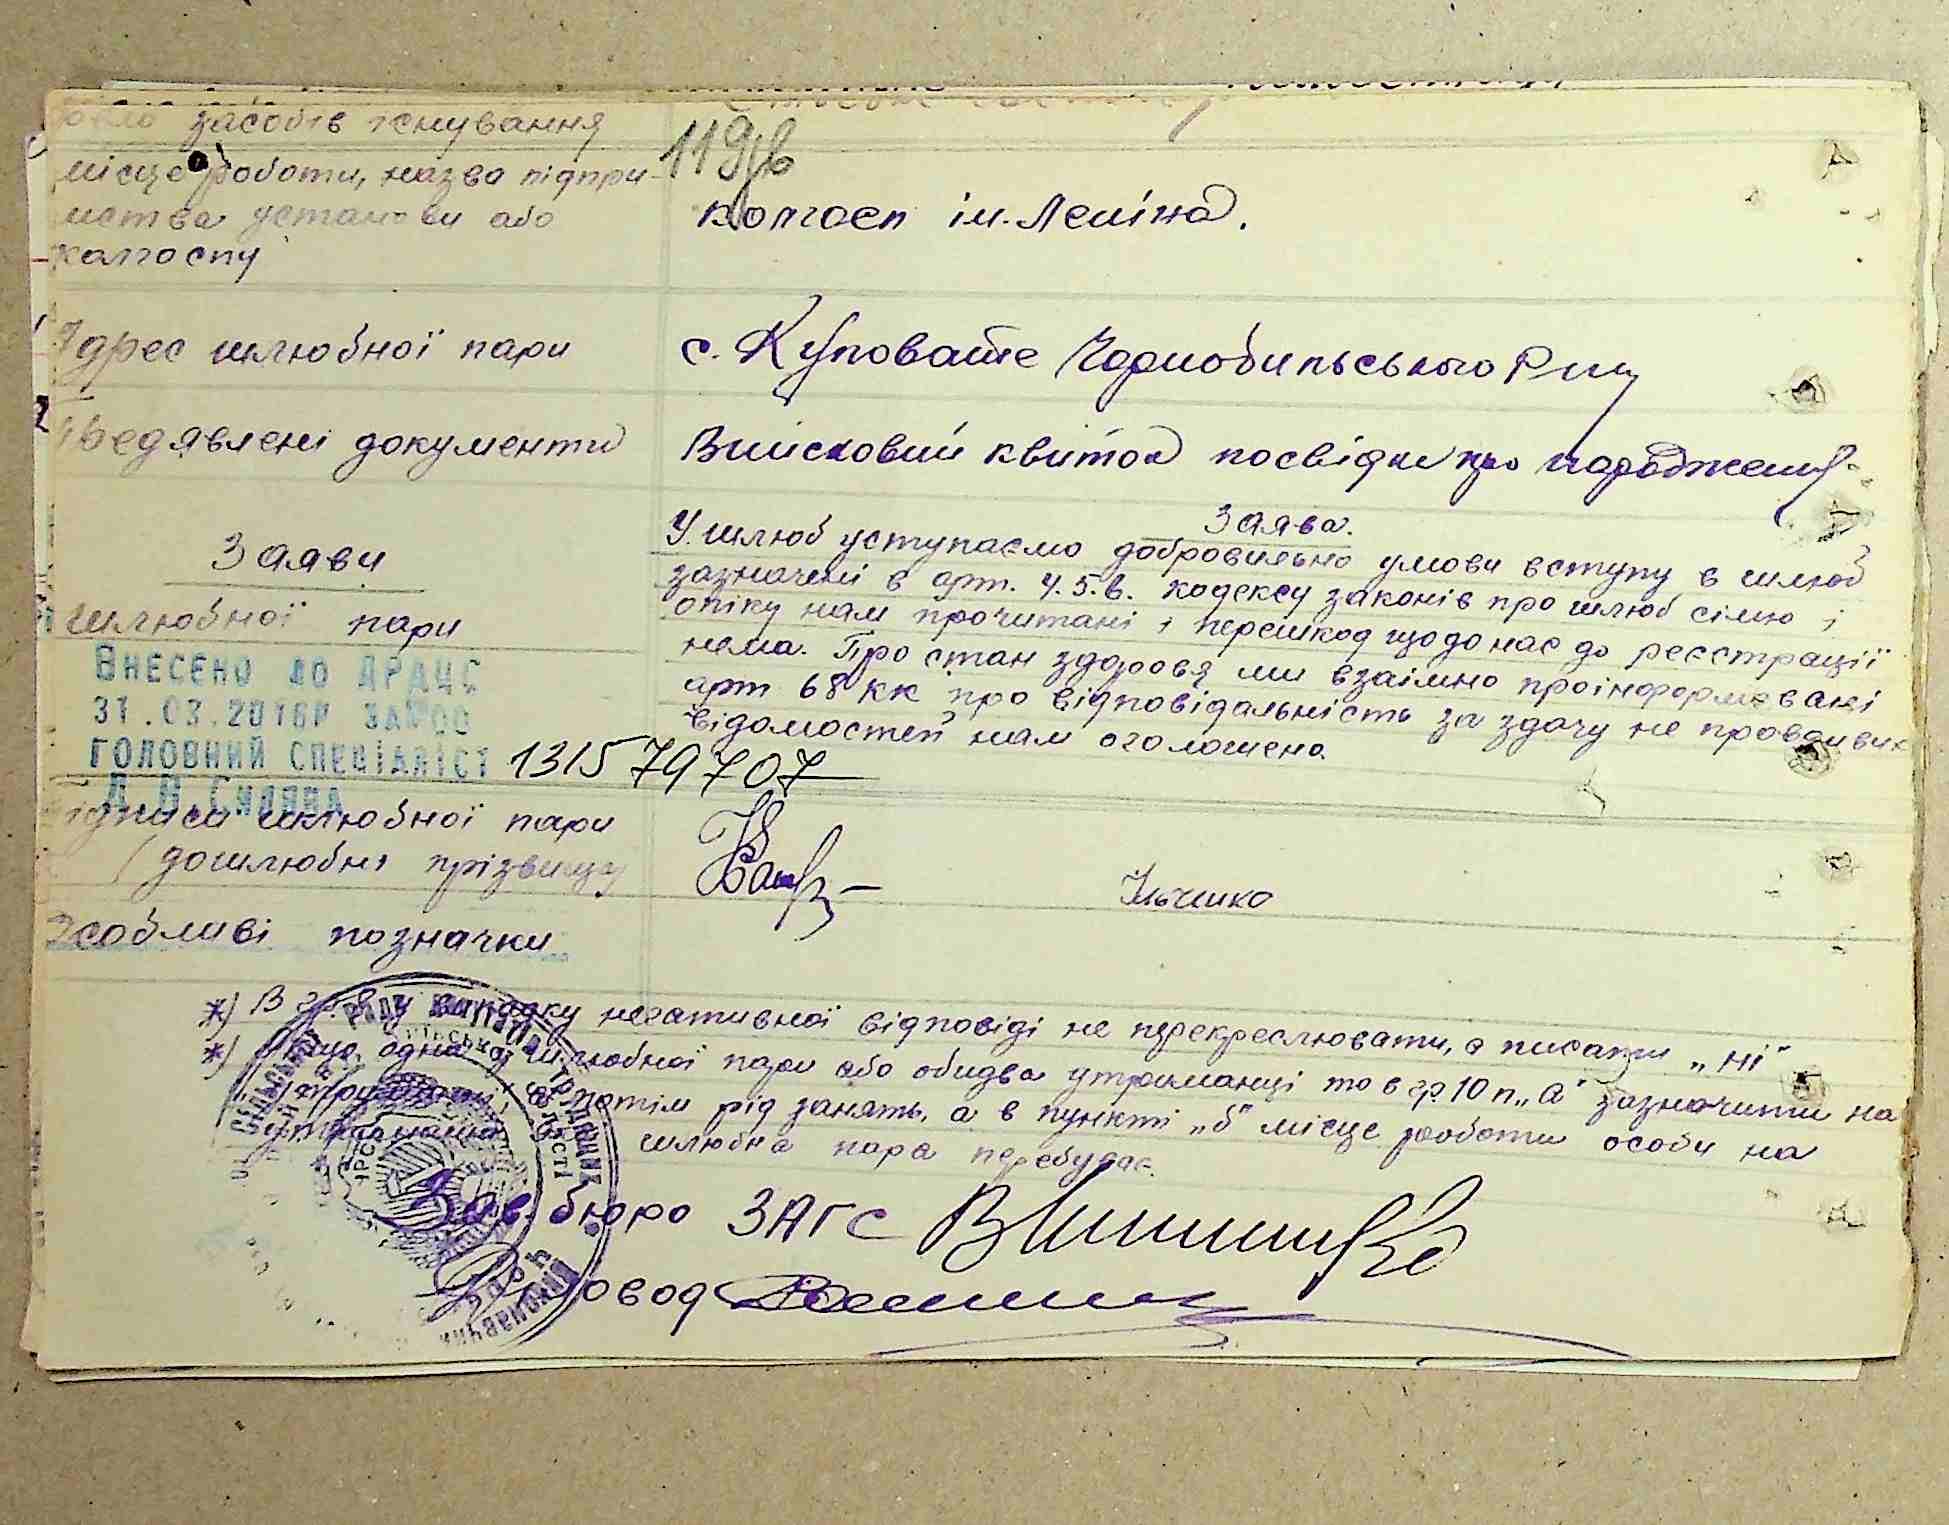 засобів існування
119зв
місце роботи, назва підпри-
мства установи або
колгоспу
колгосп ім. Леніна.
Адрес шлюбної пари
с. Куповате Чорнобильського Р-ну
Предявлені документи
Військовий квиток посвідки про народження
Заяви
шлюбної пари
Заява.
У шлюб уступаємо добровильно умови вступу в шлюб
зазначені в арт. 4.5.6. кодексу законів про шлюб сімю і
опіку нам прочитані і перешкод щодо нас до реєстрації
нема. Про стан здоровя ми взаімно проінформовані
арт 68 КК про відповідальність за здачу не правдивих
відомостей нам оголошено.
ВНЕСЕНО ДО ДРАЦС
31.03.2016Р ЗА №00
ГОЛОВНИЙ СПЕЦІАЛІСТ 131579707
Підписи шлюбної пари
(дошлюбні прізвища)
Ільченко
Особливі позначки
*) В випадку негативної відповіді не перекреслювати, а писати „ні"
*) одна шлюбної пари або обидва утриманці то в гр. 10 п „а" зазначити на
потім рід занять, а в пункті „б" місце роботи особи на
шлюбна пара перебуває.
Зав. бюро ЗАГС
Діловод